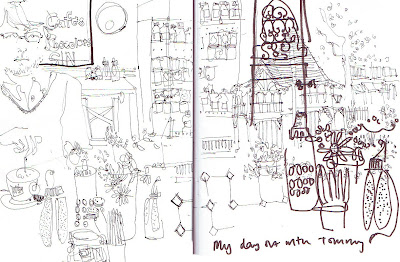 Coffee
Barcelona
My day out with Tommy